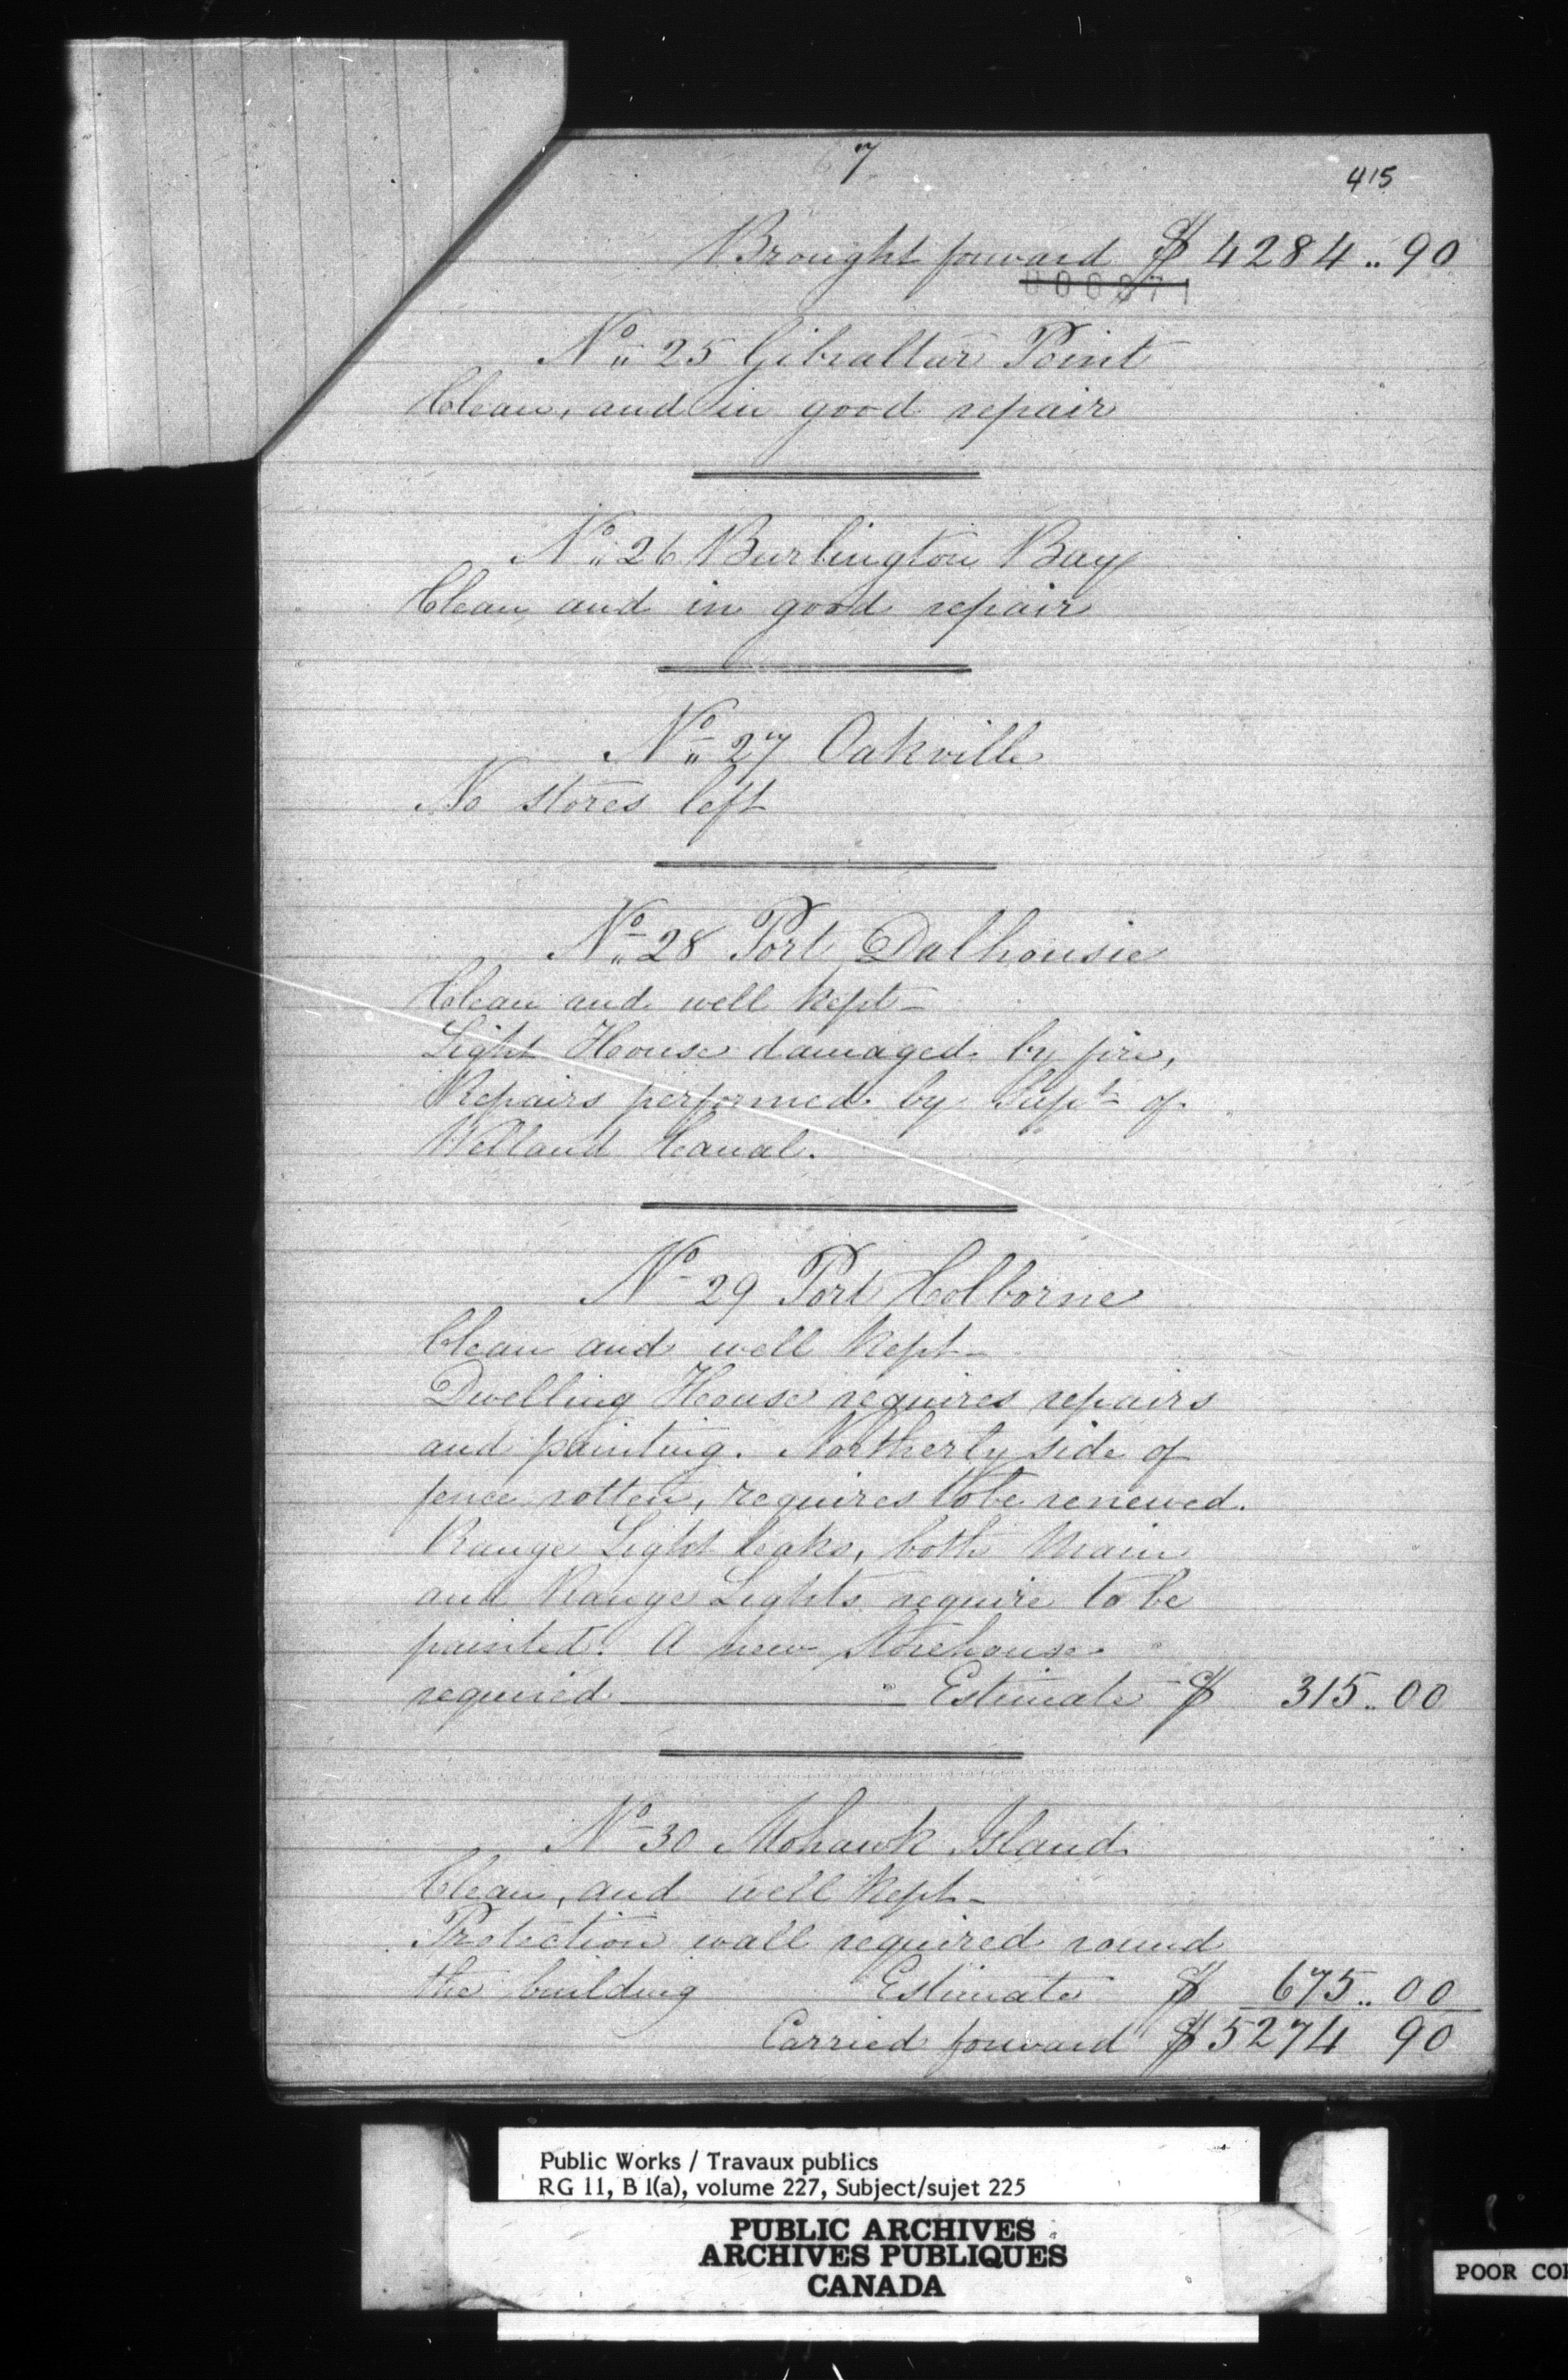 7
415
Brought forward $ 4284 .. 90
No 25 Gibraltar Point
Clean, and in good repair
No 26 Burlington Bay
Clean and in good repair
No 27 Oakville
No stores left
No 28 Port Dalhousie
Clean and well kept -
Light House damaged by fire,
Repairs performed by Supt of
Welland Canal.
No 29 Port Colborne
Clean and well kept -
Dwelling House requires repairs
and painting. Northerly side of
fence rotten, requires to be renewed.
Range Light leaks, both Main
and Range Lights require to be
painted. A new Storehouse
required — Estimate $ 315 .. 00
No 30 Mohawk Island
Clean, and well kept -
Protection wall required round
the building Estimate $ 675 .. 00
Carried forward $ 5274 90
Public Works / Travaux publics
RG 11, B 1(a), volume 227, Subject/sujet 225
PUBLIC ARCHIVES
ARCHIVES PUBLIQUES
CANADA
POOR